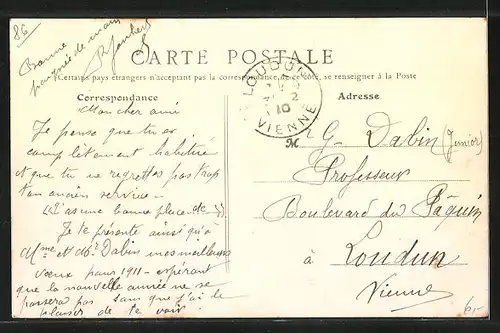 86
Bonne
poignée de main
R. Joubert
CARTE POSTALE
Certains pays étrangers n'acceptant pas la correspondance de ce côté, se renseigner à la Poste
Correspondance
Adresse
LOUDUN
2
10
VIENNE
Mon cher ami
Je pense que tu es
complètement habitué
et que tu ne regrettes pas trop
ton ancien service -
Je te présente ainsi qu'à
Mme et Mr. Dabin mes meilleurs
vœux pour 1911 - espérant
que la nouvelle année ne se
passera pas sans que j'ai le
plaisir de te voir.
M G. Dabin (Junior)
Professeur
Boulevard du Pâquin
à Loudun
Vienne